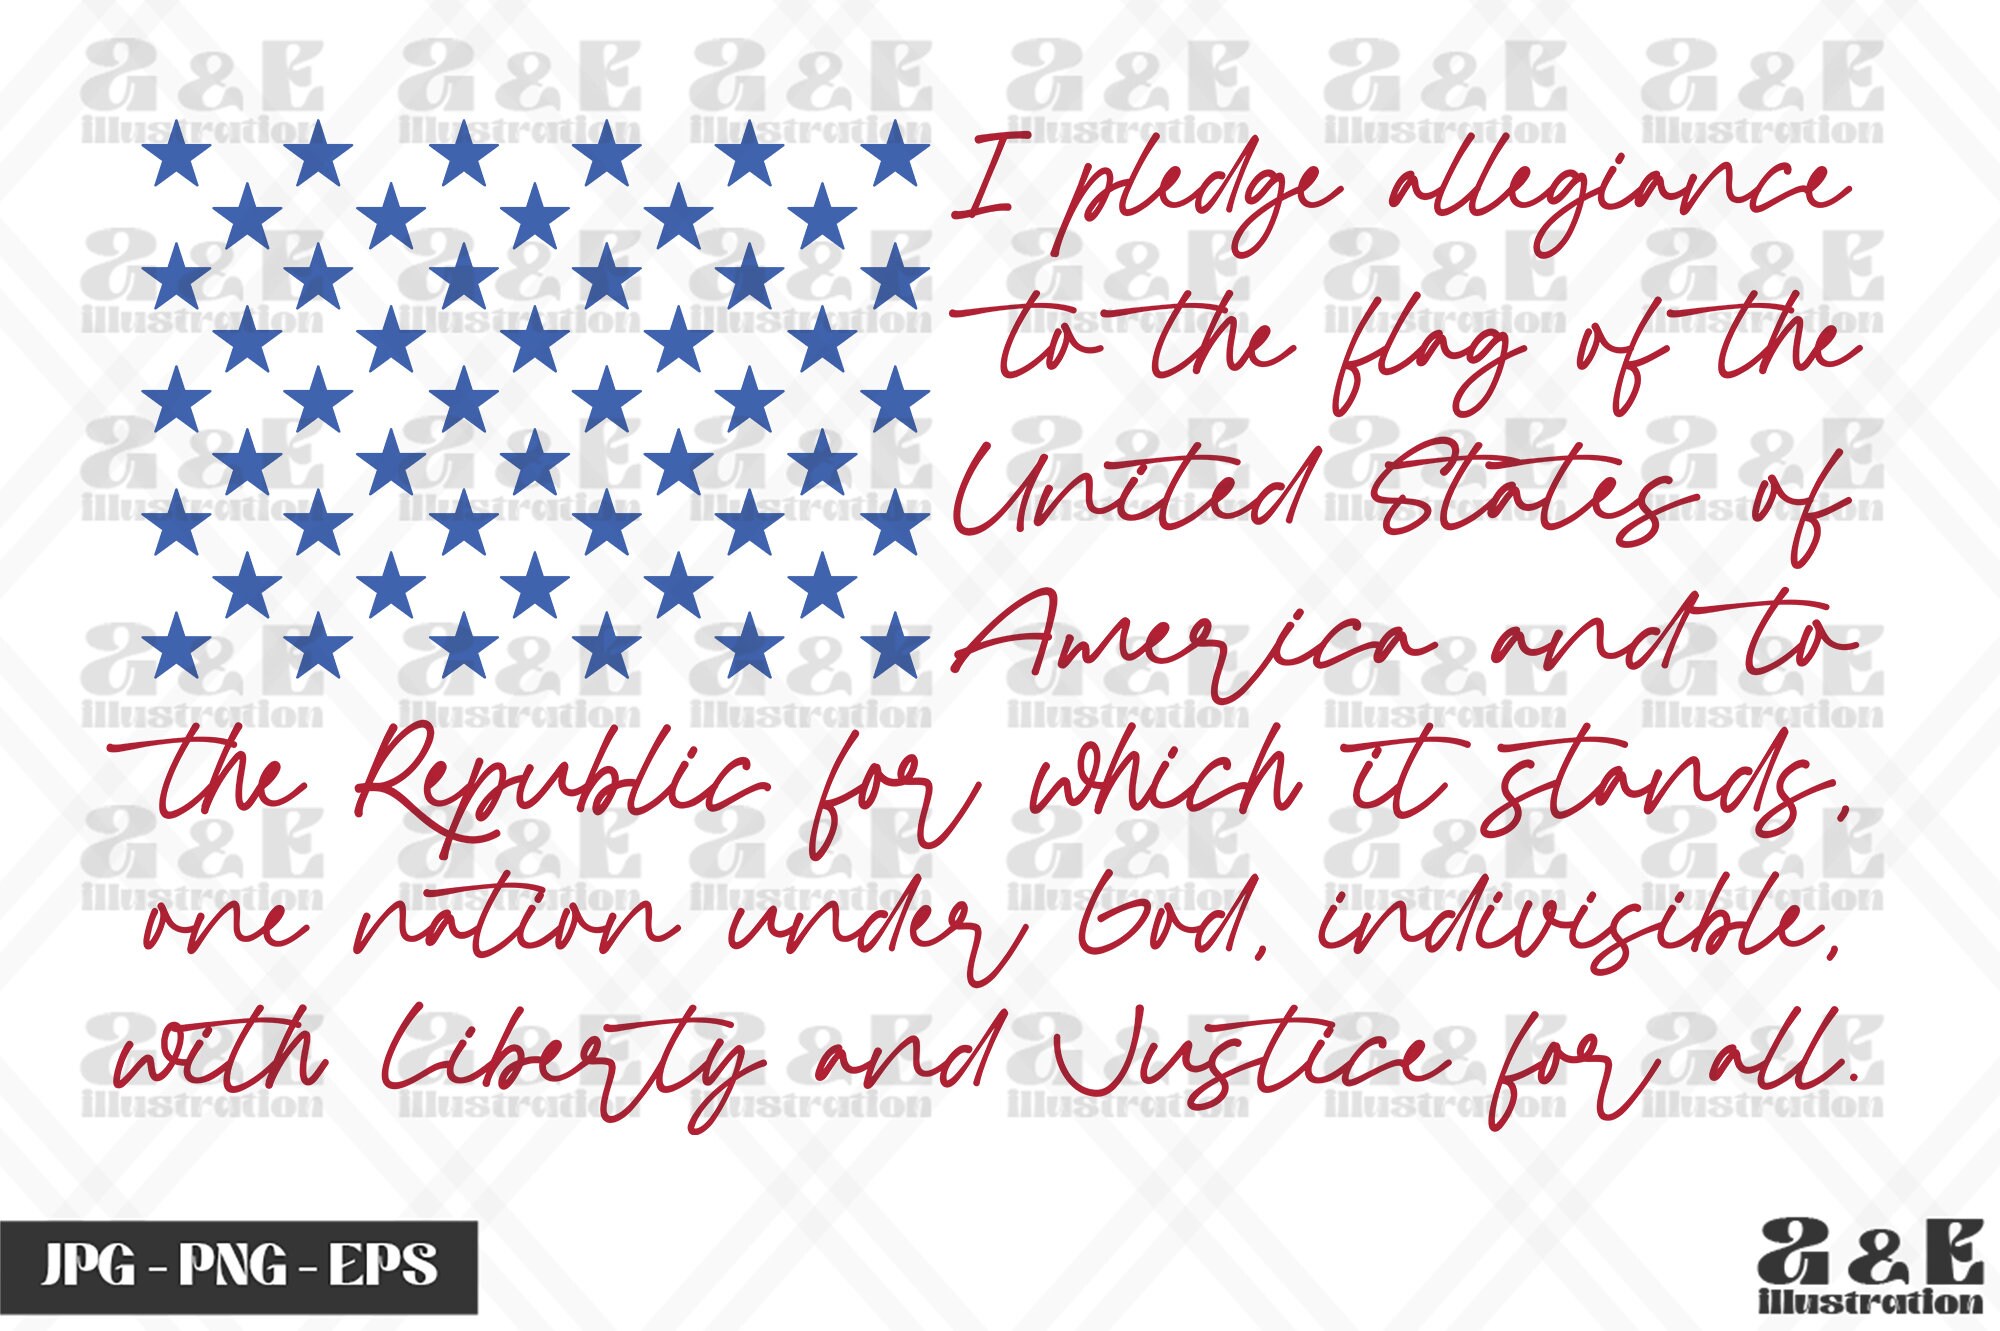 I pledge allegiance
to the flag of the
United States of
America and to
the Republic for which it stands,
one nation under God, indivisible,
with Liberty and Justice for all.
JPG - PNG - EPS
a & E
illustration